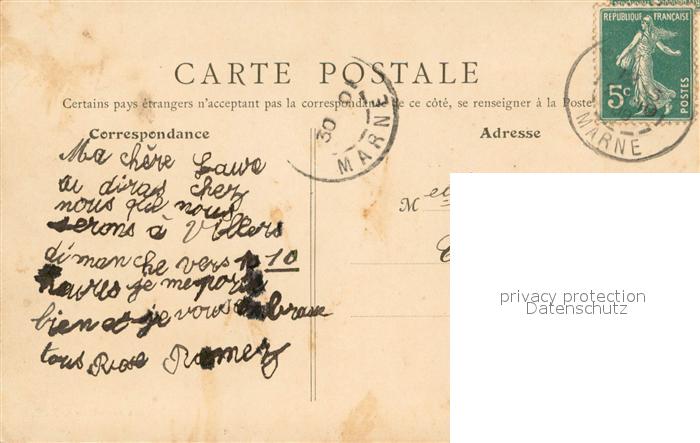 CARTE POSTALE
Certains pays étrangers n'acceptant pas la correspondance de ce côté, se renseigner à la Poste
RÉPUBLIQUE FRANÇAISE
5c
POSTES
MARNE
30
MARNE
Correspondance
Adresse
Ma chère Laure
tu diras chez
nous que nous
serons à Villers
dimanche vers 10
heures je me porte
bien et je vous embrasse
tous Rose
M elle
privacy protection
Datenschutz